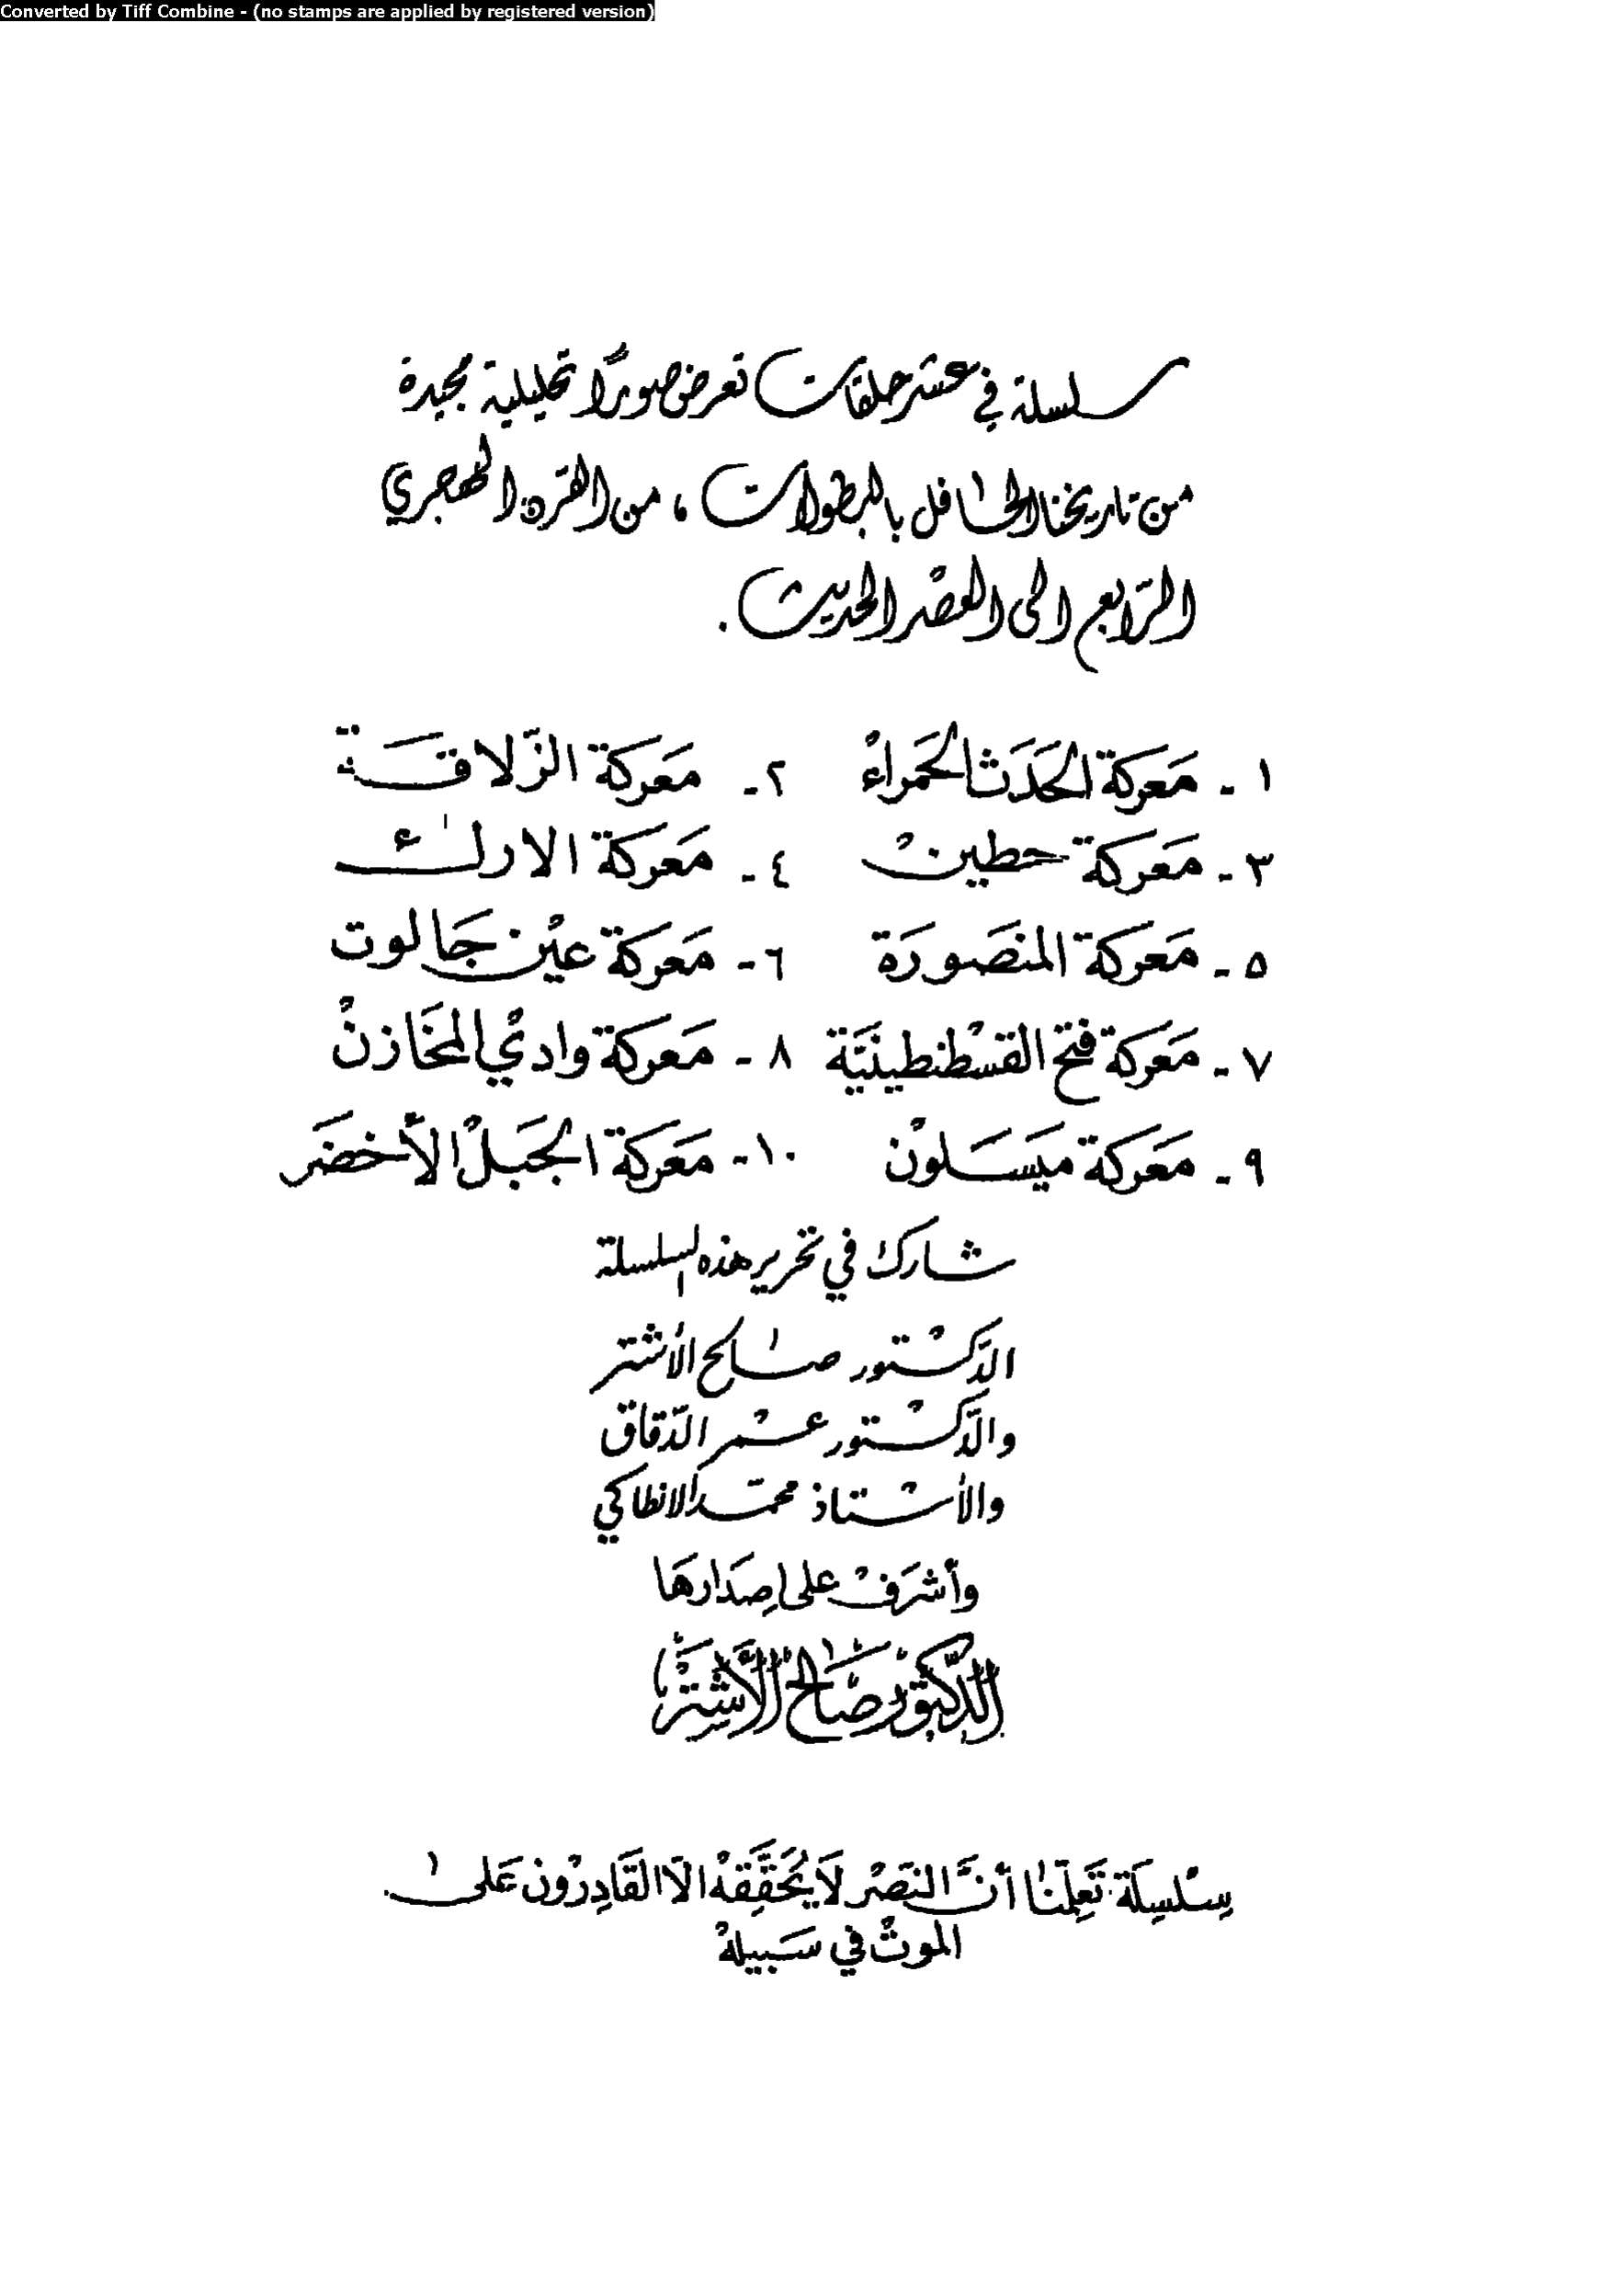 Converted by Tiff Combine - (no stamps are applied by registered version)
سلسلة في عشر حلقات تعرض صورًا تحليلية مجيدة
من تاريخنا الحافل بالبطولات ، من القرن الهجري
الرّابع الى العصْر الحديث .
١ - مَعركة الحَدَث الحَمراءْ ٢ - مَعركة الزّلاقَة
٣ - مَعركة حطينْ ٤ - مَعركة الارك
٥ - مَعركة المنصَورَة ٦ - مَعركة عيْن جَالوت
٧ - مَعركة فتح القسْطنطينيَّة ٨ - مَعركة واديْ المخَازنْ
٩ - مَعركة ميَسَلونْ ١٠ - مَعركة الجَبَلْ الأخضَر
شارك في تحرير هذه السلسلة
الدّكتور صالح الأشتر
والدّكتور عمر الدّقاق
والأستاذ محمّد الانطاكي
وأشرَف على اصِدَارهَا
الدّكتور صَالح الأشتر
سِلْسِلَة تَعلِّمنَا أنَّ النَصْر لَا يُحَقِّقَهْ الّا القَادِرْون عَلى
الموتْ في سَبيلهْ